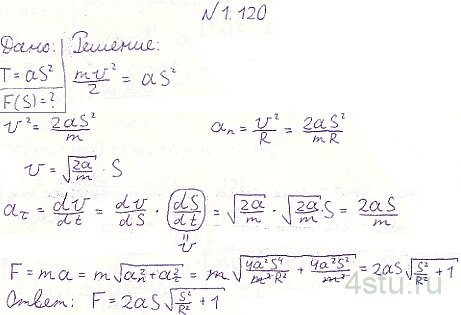 N 1.120
Дано: Решение:
T = aS² mv²/2 = aS²
F(S) = ?
v² = 2aS²/m aₙ = v²/R = 2aS²/mR
v = √(2a/m) · S
a_τ = dv/dt = dv/dS · (dS/dt) = √(2a/m) · √(2a/m) S = 2aS/m
" v
F = ma = m√(aₙ² + a_τ²) = m√(4a²S⁴/m²R² + 4a²S²/m²) = 2aS√(S²/R² + 1)
Ответ: F = 2aS√(S²/R² + 1)
4stu.ru